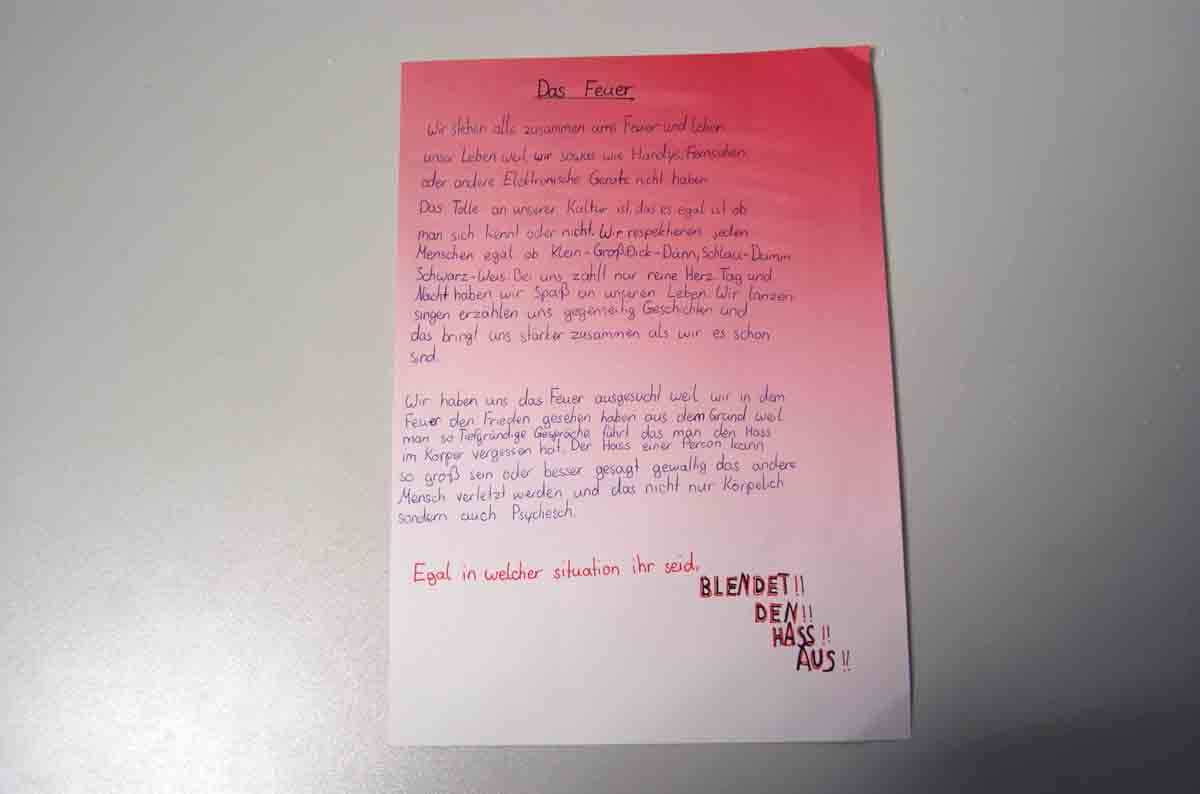 Das Feuer
Wir stehen alle zusammen ums Feuer und Leben
unser Leben weil wir sowas wie Handys, Fernsehen
oder andere Elektronische Geräte nicht haben
Das Tolle an unserer Kultur ist, das es egal ist ob
man sich kennt oder nicht. Wir respektieren jeden
Menschen egal ob Klein-Groß, Dick-Dünn, Schlau-Dumm
Schwarz-Weis. Bei uns zählt nur reine Herz. Tag und
Nacht haben wir Spaß an unseren Leben. Wir tanzen
singen erzählen uns gegenseitig Geschichten und
das bringt uns stärker zusammen als wir es schon
sind.
Wir haben uns das Feuer ausgesucht weil wir in dem
Feuer den Frieden gesehen haben aus dem Grund weil
man so Tiefgründige Gespräche führt das man den Hass
im Körper vergessen hat. Der Hass einer Person kann
so groß sein oder besser gesagt gewaltig das andere
Mensch verletzt werden und das nicht nur Körpelich
sondern auch Psychesch.
Egal in welcher situation ihr seid,
BLENDET!!
DEN!!
HASS!!
AUS!!